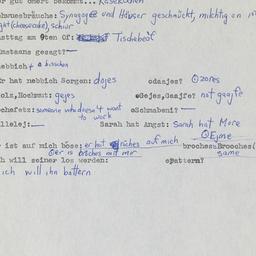 r gut omert bekommt... Käsekuchen
hmuesbräuche: Synagoge und Häuser geschmückt, milchtig en
gut (cheesecake), schiur
stag am 9ten Of: Tischebeof
mstaans gesagt?—
ebbich: a bisschen
r hat nebbich Sorgen: dojes odaajes? ozores
olz, Hochmut: gejes oGejes, Gaajfe? not gaajfe
chefets: someone who doesn't want to work oSchmabeni? —
llelej: — Sarah hat Angst: Sarah hat More
oEjme
ist auf mich böse: er hat brüches auf mich broches: Brooches(
oer is broches mit mor same
h will seiner los werden: oPattern?
ich will ihn battern